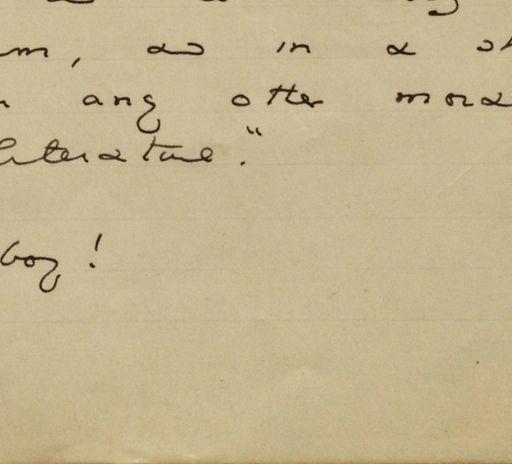 m, as in a sh
n any other mora
literature."
boy!